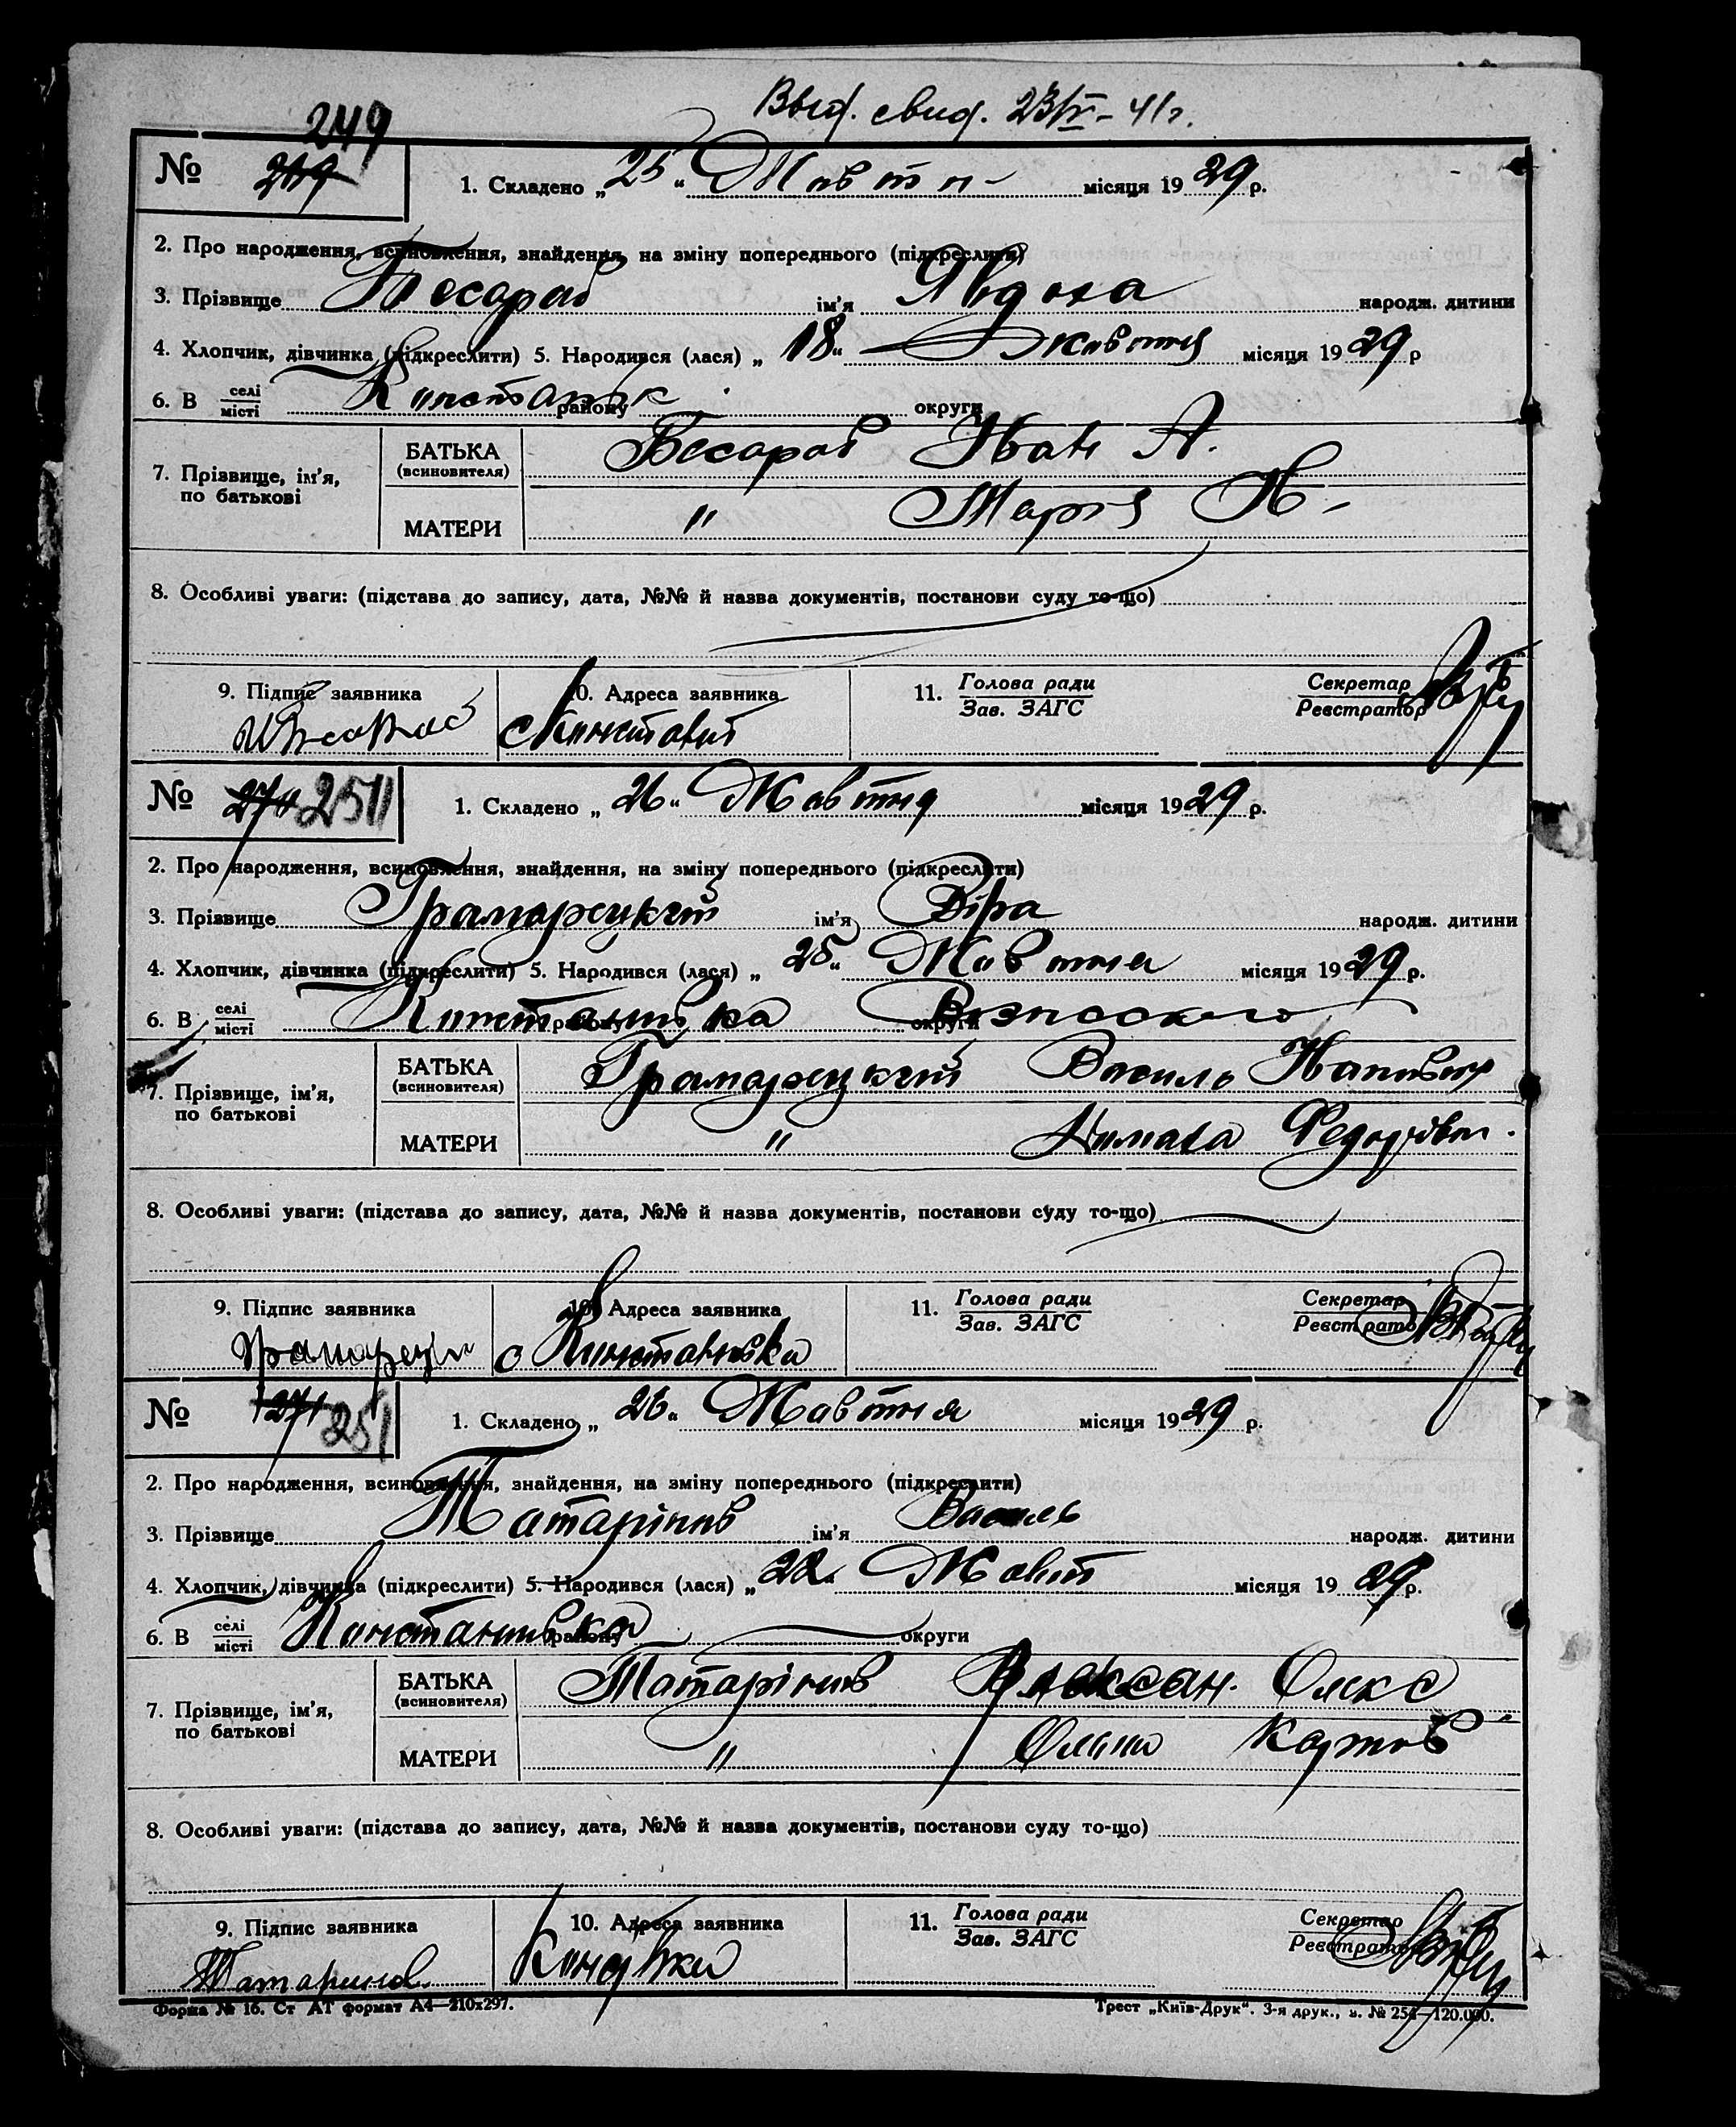 Выд. свид. 23/IV - 41 г.
249
№ 249 1. Складено „25" Жовтн- місяця 1929 р.
2. Про народження, всиновлення, знайдення, на зміну попереднього (підкреслити)
3. Прізвище Бесараб ім'я Явдоха народж. дитини
4. Хлопчик, дівчинка (підкреслити) 5. Народився (лася) „18" Жовтня місяця 1929 р
6. В селі/місті району округи
7. Прізвище, ім'я, по батькові
БАТЬКА (всиновителя) Бесараб Іван А.
МАТЕРИ " Марія Н-
8. Особливі уваги: (підстава до запису, дата, №№ й назва документів, постанови суду то-що)
9. Підпис заявника 10. Адреса заявника 11. Голова ради/Зав. ЗАГС Секретар/Реєстратор
№ 251 1. Складено „26" Жовтня місяця 1929 р.
2. Про народження, всиновлення, знайдення, на зміну попереднього (підкреслити)
3. Прізвище Грамарецкий ім'я Віра народж. дитини
4. Хлопчик, дівчинка (підкреслити) 5. Народився (лася) „25" Жовтня місяця 1929 р.
6. В селі/місті району округи
7. Прізвище, ім'я, по батькові
БАТЬКА (всиновителя) Грамарецкий Василь
МАТЕРИ " Федорівн.
8. Особливі уваги: (підстава до запису, дата, №№ й назва документів, постанови суду то-що)
9. Підпис заявника 10. Адреса заявника 11. Голова ради/Зав. ЗАГС Секретар/Реєстратор
№ 271 251 1. Складено „26" Жовтня місяця 1929 р.
2. Про народження, всиновлення, знайдення, на зміну попереднього (підкреслити)
3. Прізвище Татарінов ім'я Василь народж. дитини
4. Хлопчик, дівчинка (підкреслити) 5. Народився (лася) „22" Жовт місяця 1929 р.
6. В селі/місті Константинівка району округи
7. Прізвище, ім'я, по батькові
БАТЬКА (всиновителя) Татарінов Олекс
МАТЕРИ "
8. Особливі уваги: (підстава до запису, дата, №№ й назва документів, постанови суду то-що)
9. Підпис заявника 10. Адреса заявника 11. Голова ради/Зав. ЗАГС Секретар/Реєстратор
Татаринов
Форма № 16. Ст АТ формат А4—210х297. Трест „Київ-Друк". 3-я друк., з. № 254—120.000.